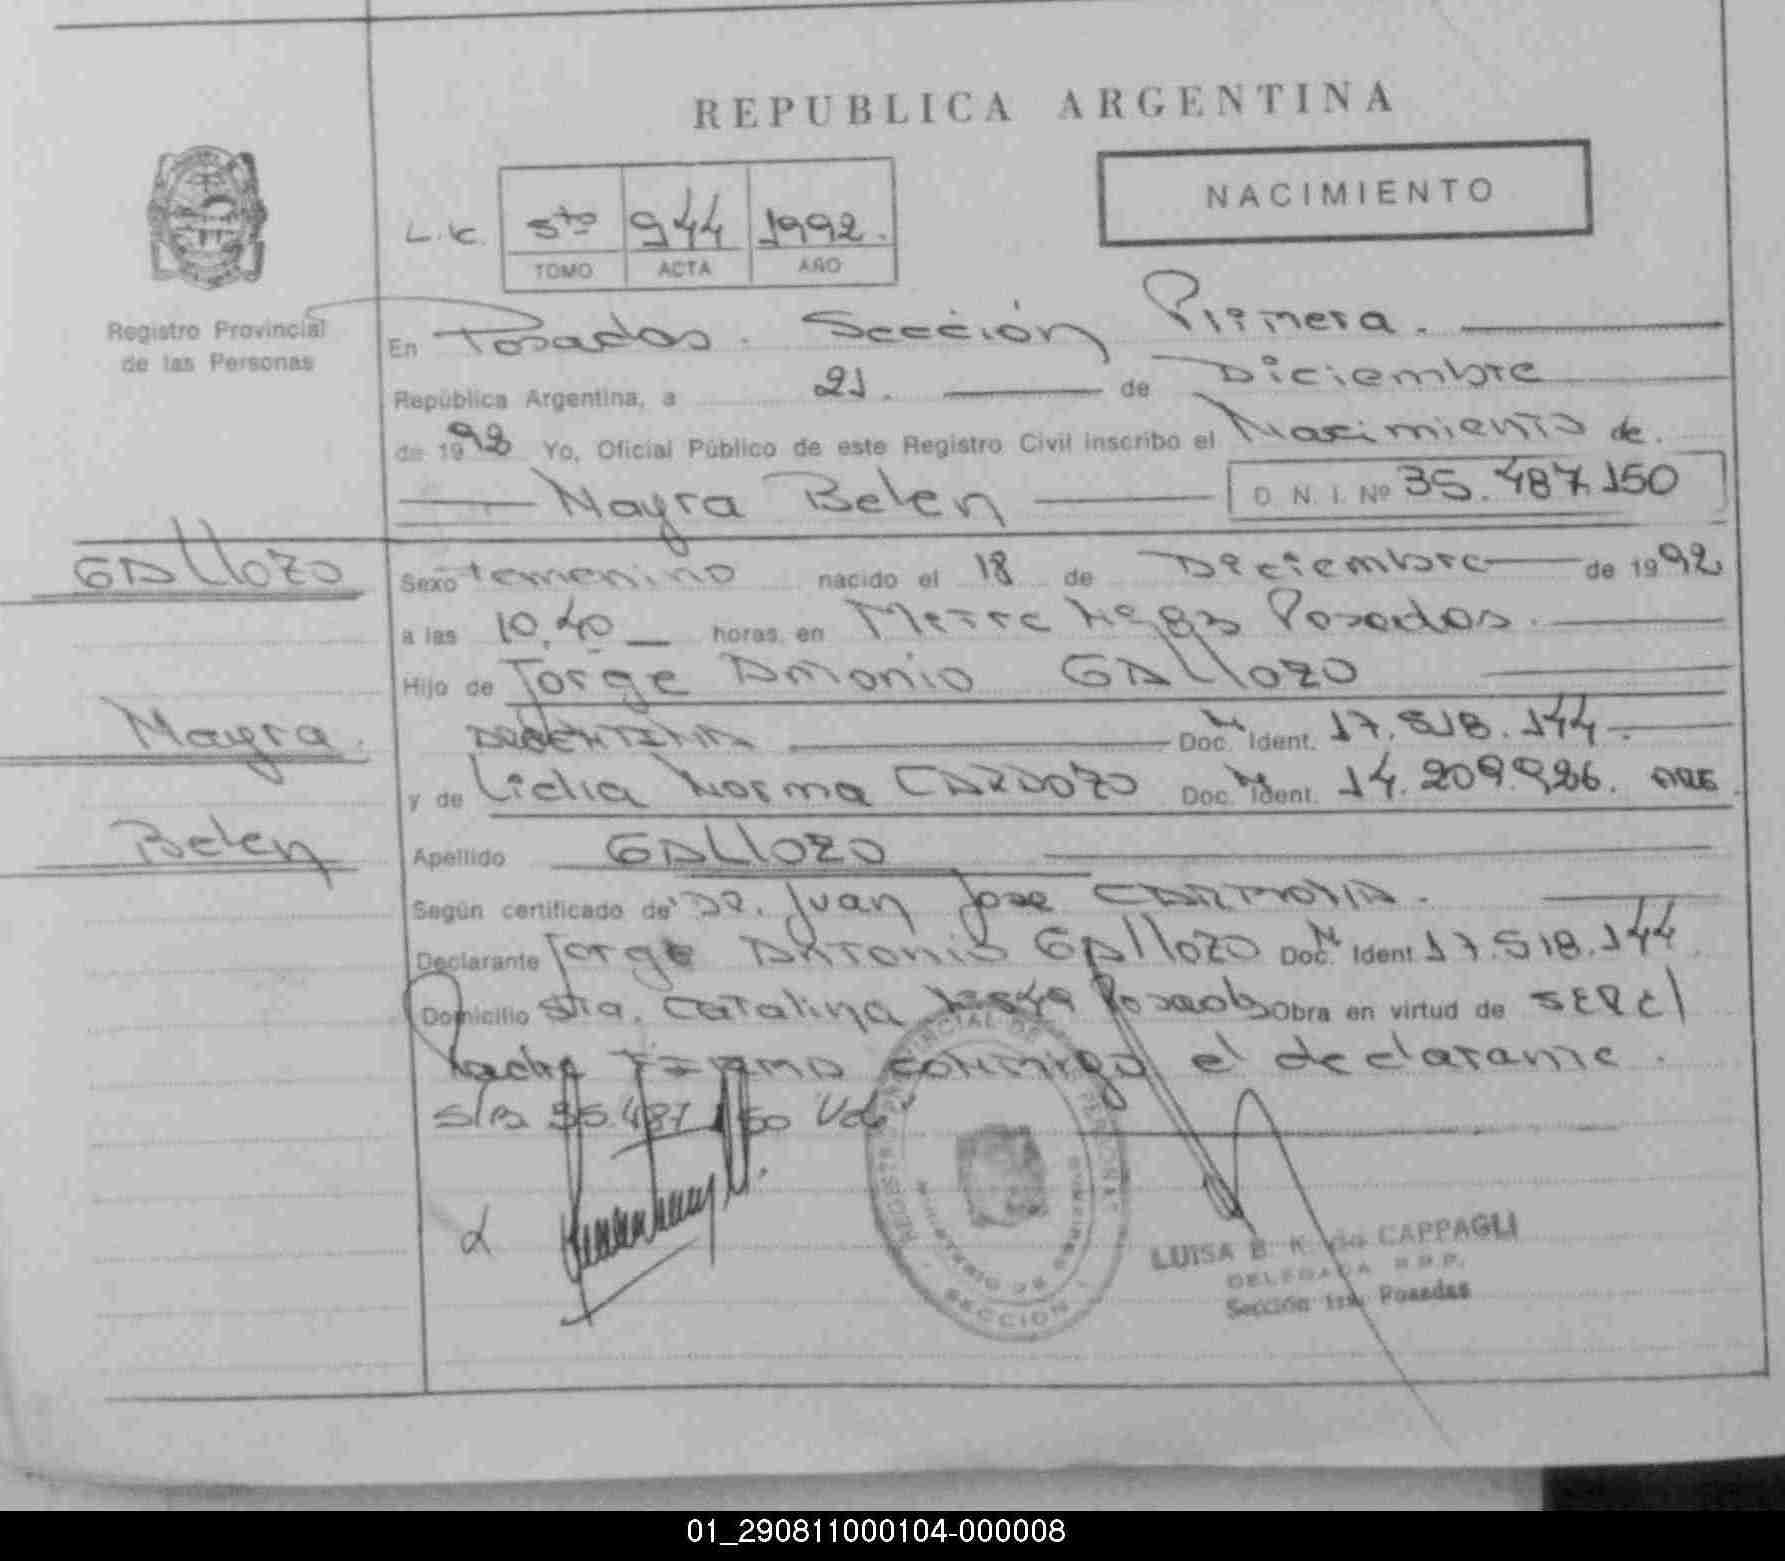 REPUBLICA ARGENTINA
NACIMIENTO
L.C. 5to 944 1992.
TOMO ACTA AÑO
Registro Provincial
de las Personas
En Posadas. Sección Primera.
República Argentina, a 21. de Diciembre
de 1992 Yo, Oficial Público de este Registro Civil inscribo el Nacimiento de.
Mayra Belen D. N. I. Nº 35.487.150
GALLOZO
Mayra.
Belen
Sexo femenino nacido el 18 de Diciembre de 1992
a las 10,40 horas, en Posadas.
Hijo de Jorge Antonio GALLOZO
ARGENTINA Doc. N Ident. 17.518.144.
y de Lidia Norma CARDOZO Doc. N Ident. 14.209.926. ARG
Apellido GALLOZO
Según certificado de DR. Juan Jose CARMONA.
Declarante Jorge Antonio GALLOZO Doc. N Ident 17.518.144
Domicilio Sta. Catalina Posadas Obra en virtud de ser el
Padre FIRMA conmigo el declarante.
S/B 35.487.150 Vale
LUISA B. K. de CAPPAGLI
DELEGADA R.P.P.
Sección 1ra. Posadas
01_290811000104-000008